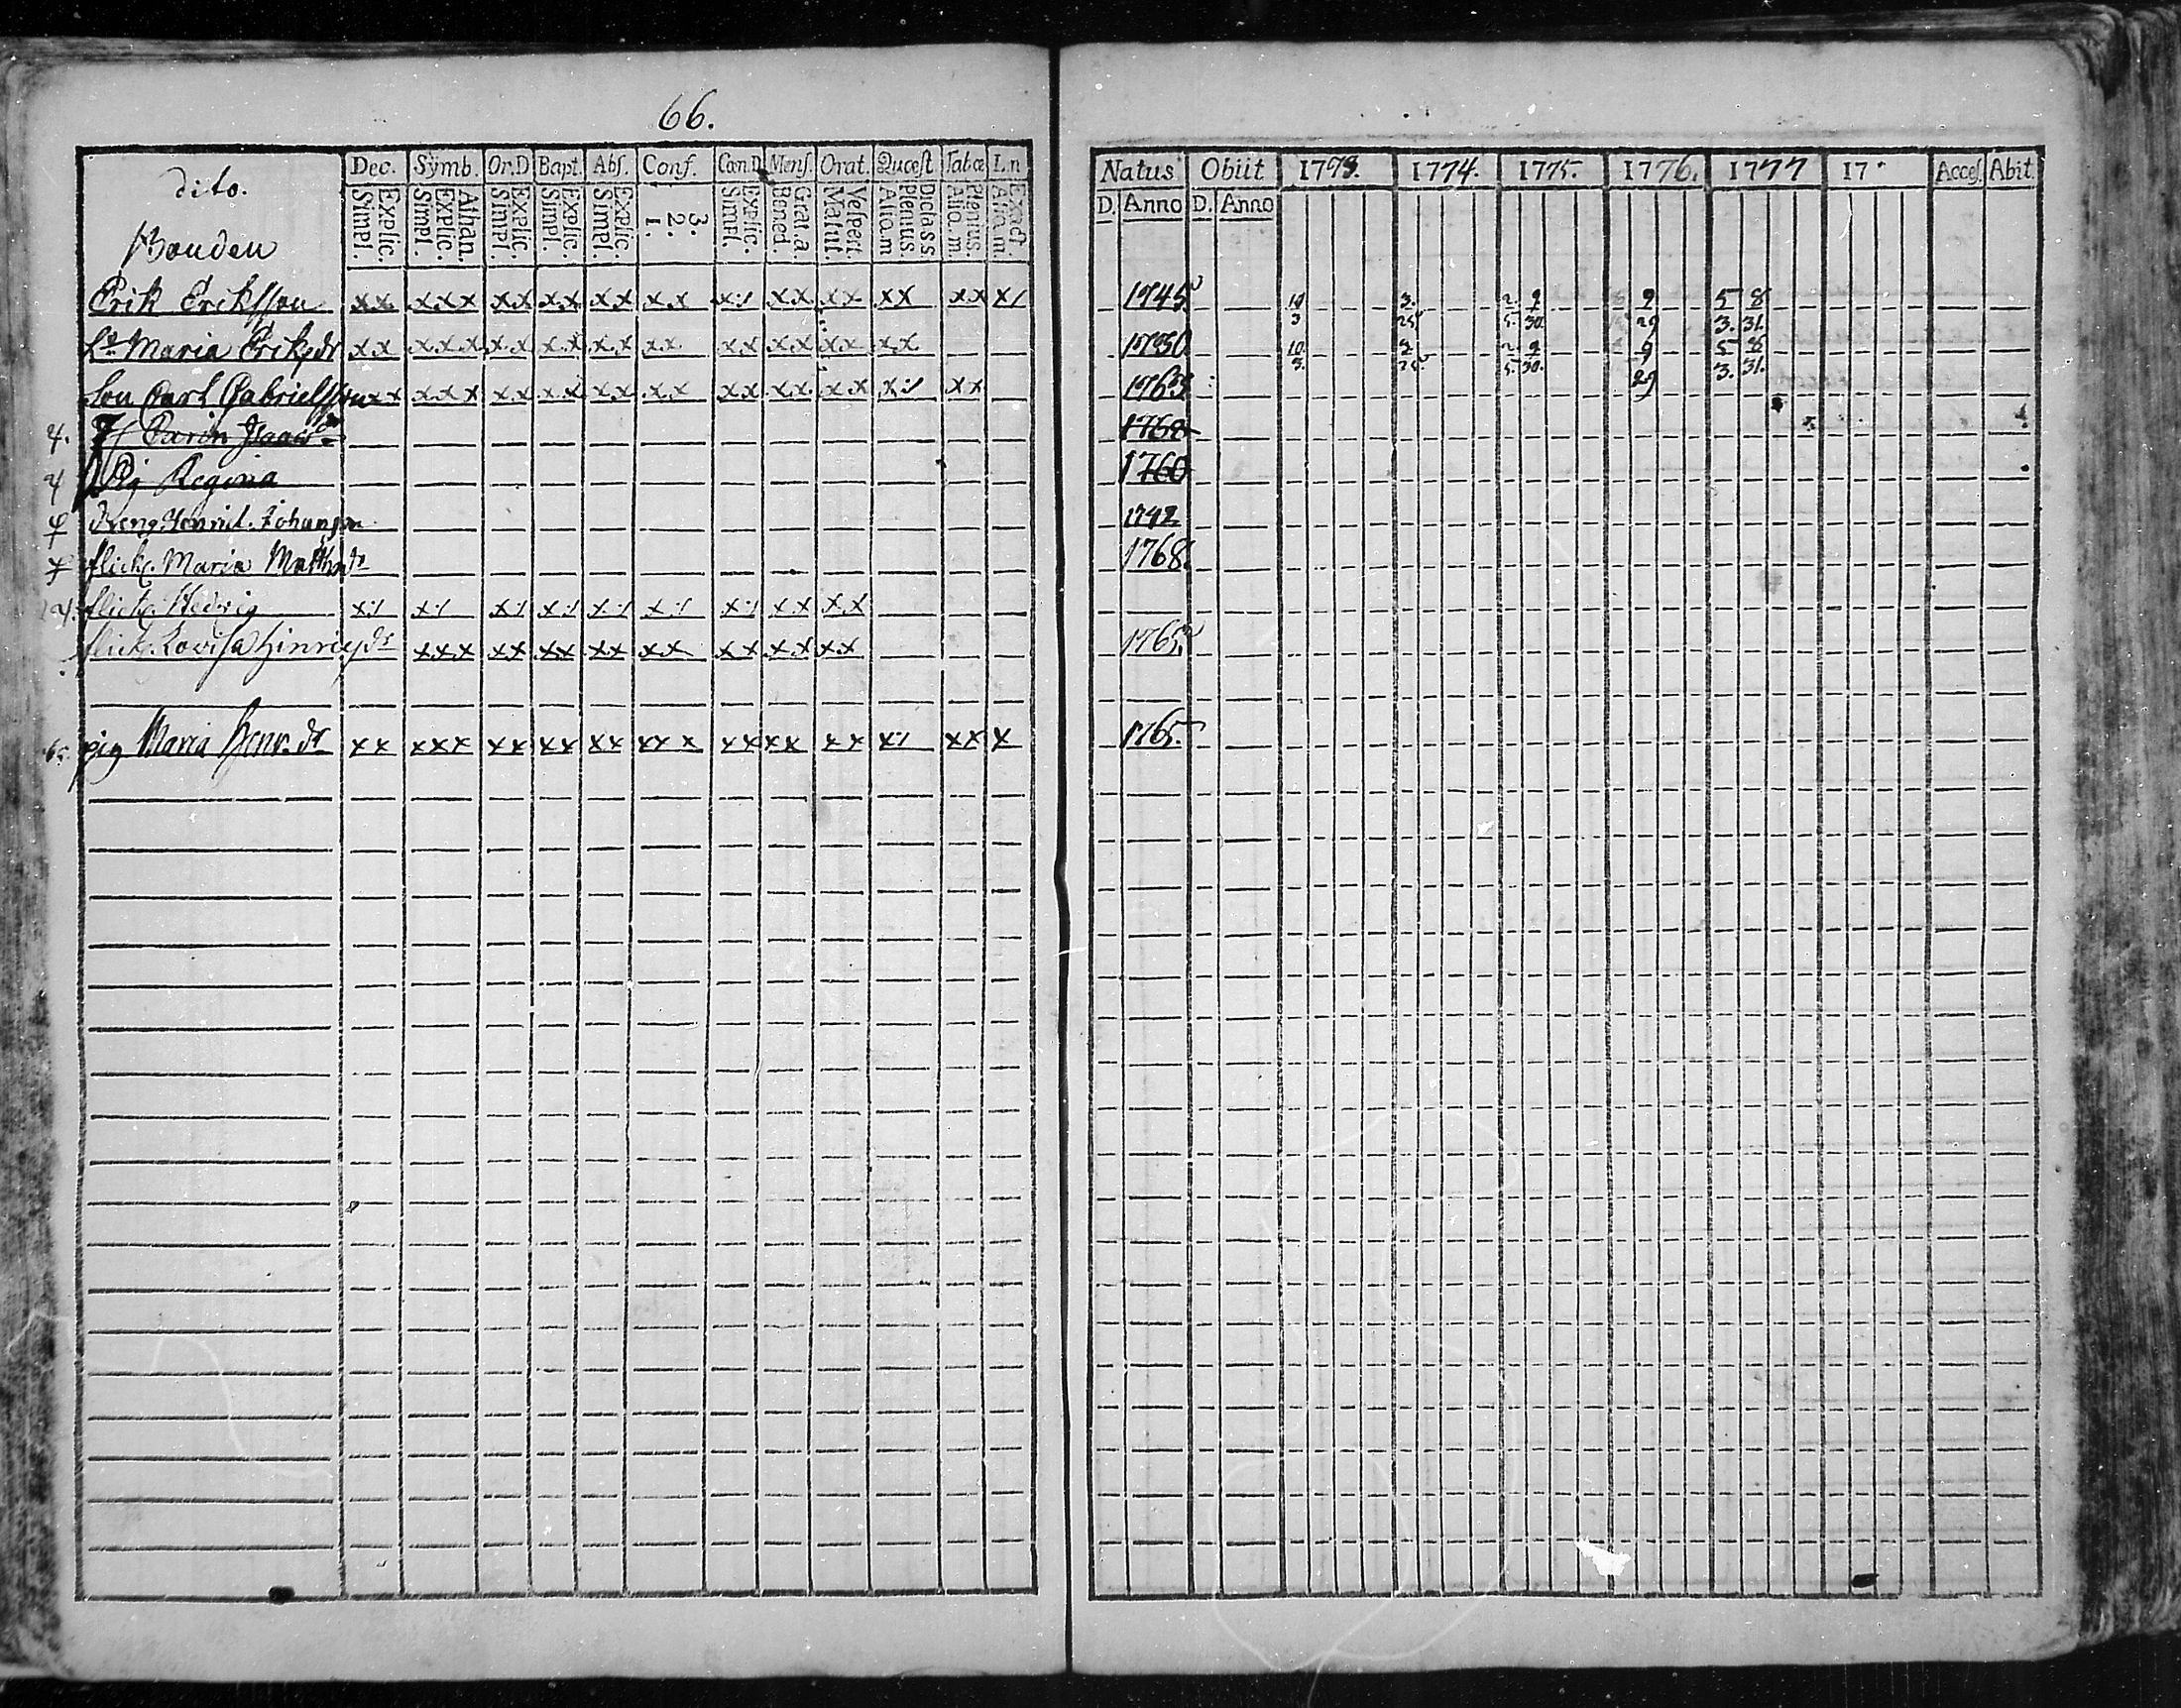 66.
dito.
Dec. Symb. Or.D Bapt. Abs. Conf. Cæn.D Mens. Orat. Quæst Tabæ L.n
Explic. Simpl. Athan. Explic. Simpl. Explic. Simpl. Explic. Simpl. Explic. Simpl. 3. 2. 1. Explic. Simpl. Grat.a. Bened. Vespert. Matut. Dictass Plenius. Alio.m Plenius. Alio.m Exact. Alio.m.
Bonden
Erik Eriksson xx xxx xx xx xx xx x:/ xx xx xx xx x/
Hu Maria Eriksdr xx xxx xx xx xx xx xx xx xx xx
Son Carl Gabrielsson xx xxx xx xx xx xx xx xx xx x:/ xx
Carin Isaacsdr
Pig Regina
Dreng Henric Johansson
flick. Maria Matthsdr
flicka Hedvig x:/ x:/ x:/ x:/ x:/ x:/ x:/ xx xx
flick. Lovisa Hinricsdr xxx xx xx xx xx xx xx xx
pig Maria Henr.dr xx xxx xx xx xx xxx xx xx xx x:/ xx x
Natus Obiit 1773. 1774. 1775. 1776. 1777 17 Acces. Abit.
D. Anno D. Anno
1745 10 3. 2. 9 9 5 8
3 25 5. 30. 29 3. 31.
1730 10. 3. 2. 9 9 5 8
3. 25. 5. 30. 29 3. 31.
1763
1758
1760
1742
1768.
1765.
1765.